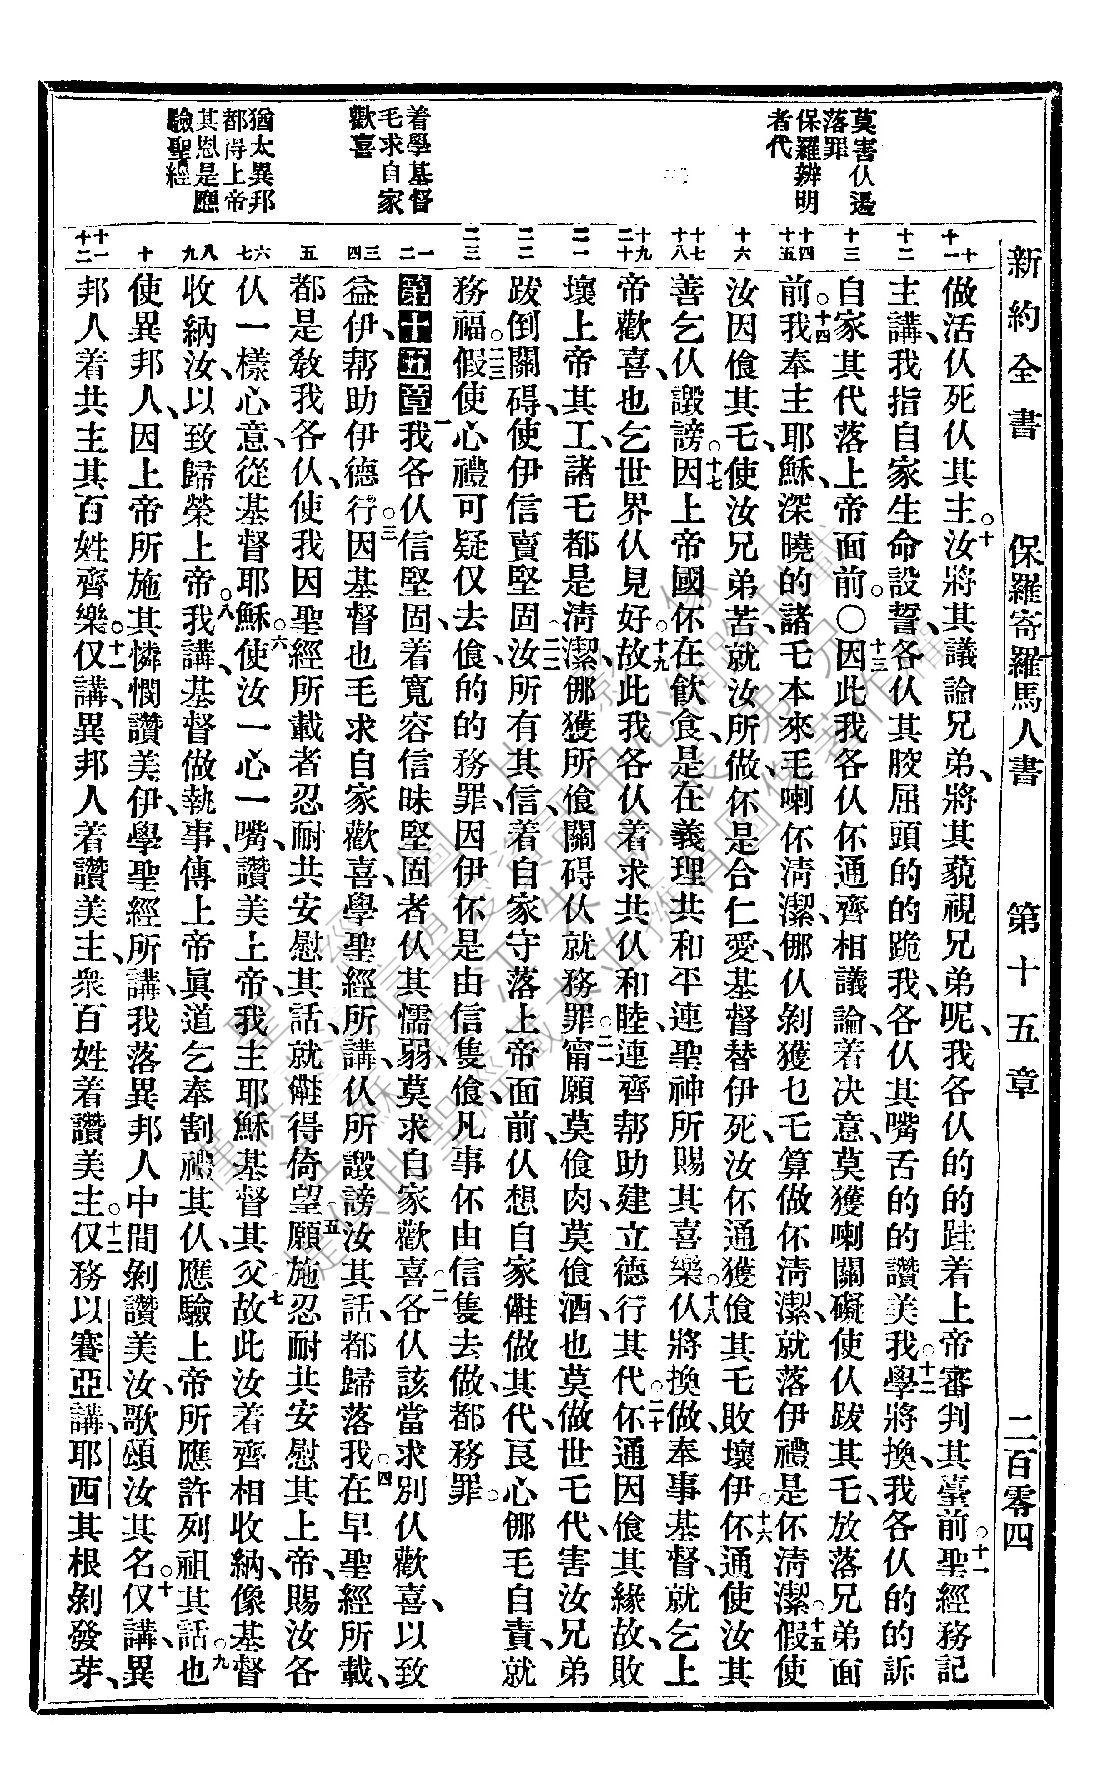 新約全書 保羅寄羅馬人書 第十五章 二百零四
莫害仈邊
落罪
保羅辨明
者代
着學基督
毛求自家
歡喜
猶太異邦
都得上帝
其恩是應
驗聖經
做活仈死仈其主。十汝將其議論兄弟、將其藐視兄弟呢、我各仈的的跬着上帝審判其臺前。十一聖經務記
主講、我指自家生命設誓、各仈其胶屈頭的的跪我、各仈其嘴舌的的讚美我。十二學將換、我各仈的的訴
自家其代落上帝面前。〇十三因此我各仈伓通齊相議論、着决意、莫獲喇關礙使仈跋其乇、放落兄弟面
前。十四我奉主耶穌、深曉的諸乇本來毛喇伓淸潔、倻仈剝獲乜乇算做伓淸潔、就落伊禮是伓淸潔。十五假使
汝因飡其乇使汝兄弟苦、就汝所做、伓是合仁愛、基督替伊死、汝伓通獲飡其乇敗壞伊。十六伓通使汝其
善乞仈譭謗。十七因上帝國伓在飲食、是在義理共和平連聖神所賜其喜樂。十八仈將換做奉事基督、就乞上
帝歡喜也乞世界仈見好。十九故此我各仈着求共仈和睦、連齊幫助建立德行其代。二十伓通因飡其緣故、敗
壞上帝其工、諸乇都是淸潔、倻獲所飡關碍仈就務罪。二一甯願莫飡肉莫飡酒也莫做世乇代害汝兄弟
跋倒關碍、使伊信賣堅固。二二汝所有其信、着自家守落上帝面前、仈想自家㒰做其代、良心倻毛自責、就
務福。二三假使心禮可疑仅去飡、的的務罪、因伊伓是由信隻飡、凡事伓由信隻去做、都務罪。
第十五章 一我各仈信堅固、着寬容信昧堅固者仈其懦弱、莫求自家歡喜。二各仈該當求別仈歡喜、以致
益伊、帮助伊德行。三因基督也毛求自家歡喜、學聖經所講、仈所譭謗汝其話、都歸落我。四在早聖經所載、
都是教我各仈、使我因聖經所載者忍耐共安慰其話、就㒰得倚望。五願施忍耐共安慰其上帝、賜汝各
仈一樣心意、從基督耶穌。六使汝一心一嘴、讚美上帝、我主耶穌基督其父。七故此汝着齊相收納、像基督
收納汝、以致歸榮上帝。八我講、基督做執事、傳上帝眞道乞奉割禮其仈、應驗上帝所應許列祖其話。九也
使異邦人、因上帝所施其憐憫讚美伊、學聖經所講、我落異邦人中間剝讚美汝、歌頌汝其名。十仅講、異
邦人着共主其百姓齊樂。十一仅講、異邦人着讚美主、衆百姓着讚美主。十二仅務以賽亞講、耶西其根剝發芽、